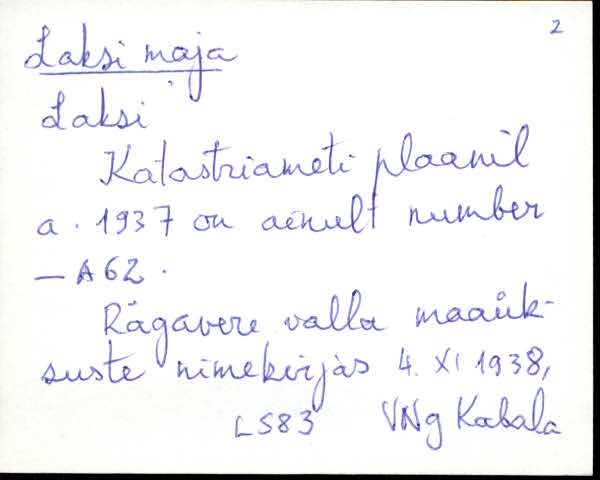 2
Laksi maja
Laksi
Katastriameti plaanil
a. 1937 on ainult number
— A62.
Rägavere valla maaük-
suste nimekirjas 4. XI 1938,
LS83 VNg Kabala